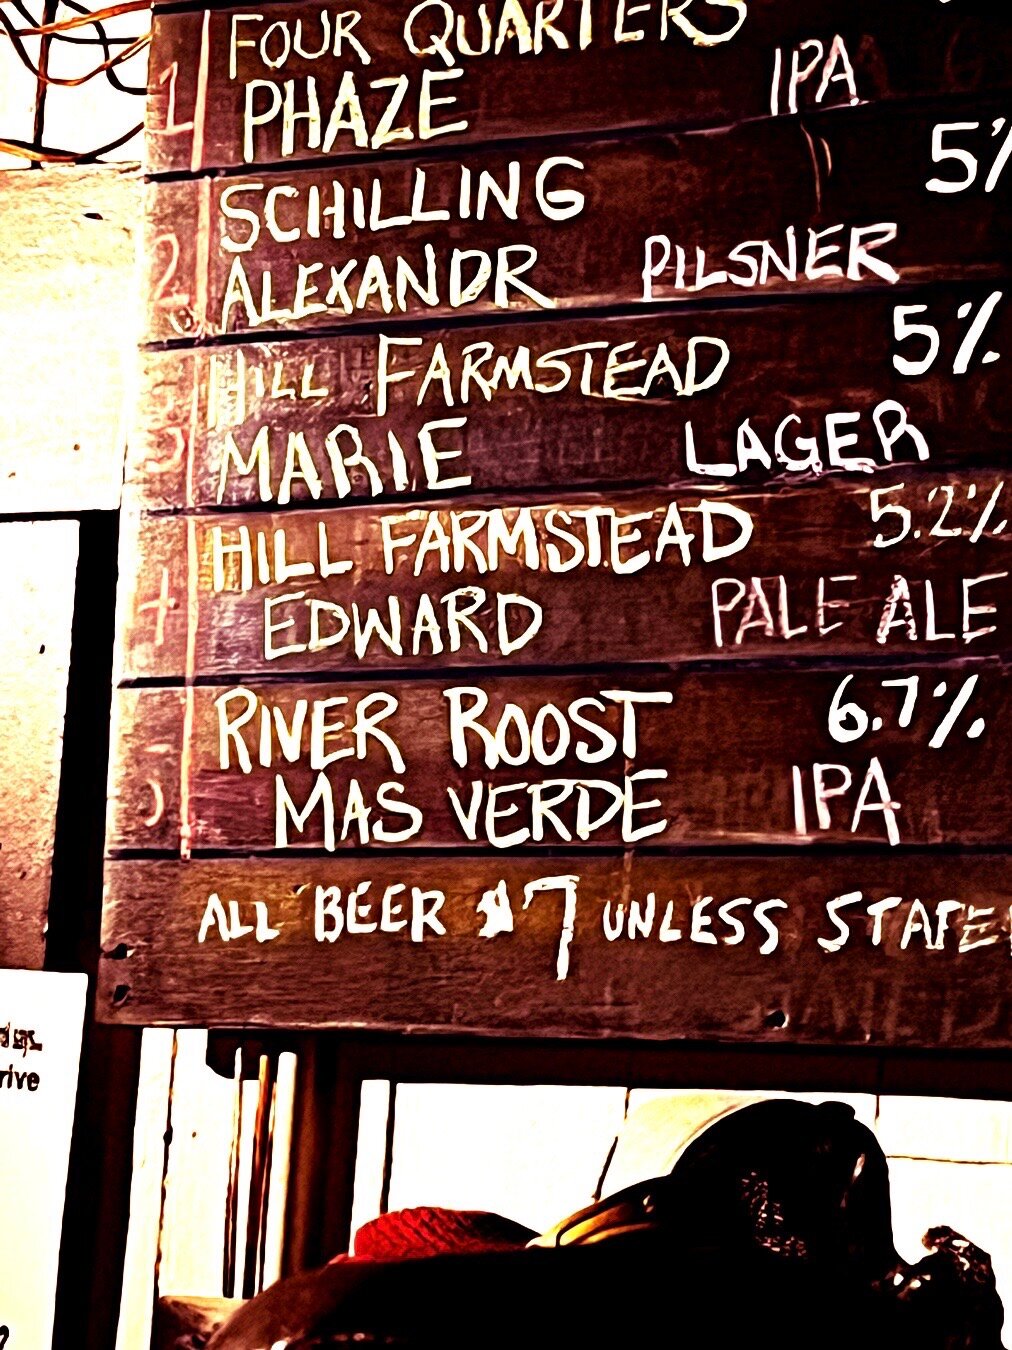 1 FOUR QUARTERS
PHAZE IPA
2 SCHILLING 5%
ALEXANDR PILSNER
3 HILL FARMSTEAD 5%
MARIE LAGER
4 HILL FARMSTEAD 5.2%
EDWARD PALE ALE
5 RIVER ROOST 6.7%
MAS VERDE IPA
ALL BEER $7 UNLESS STATE
rive